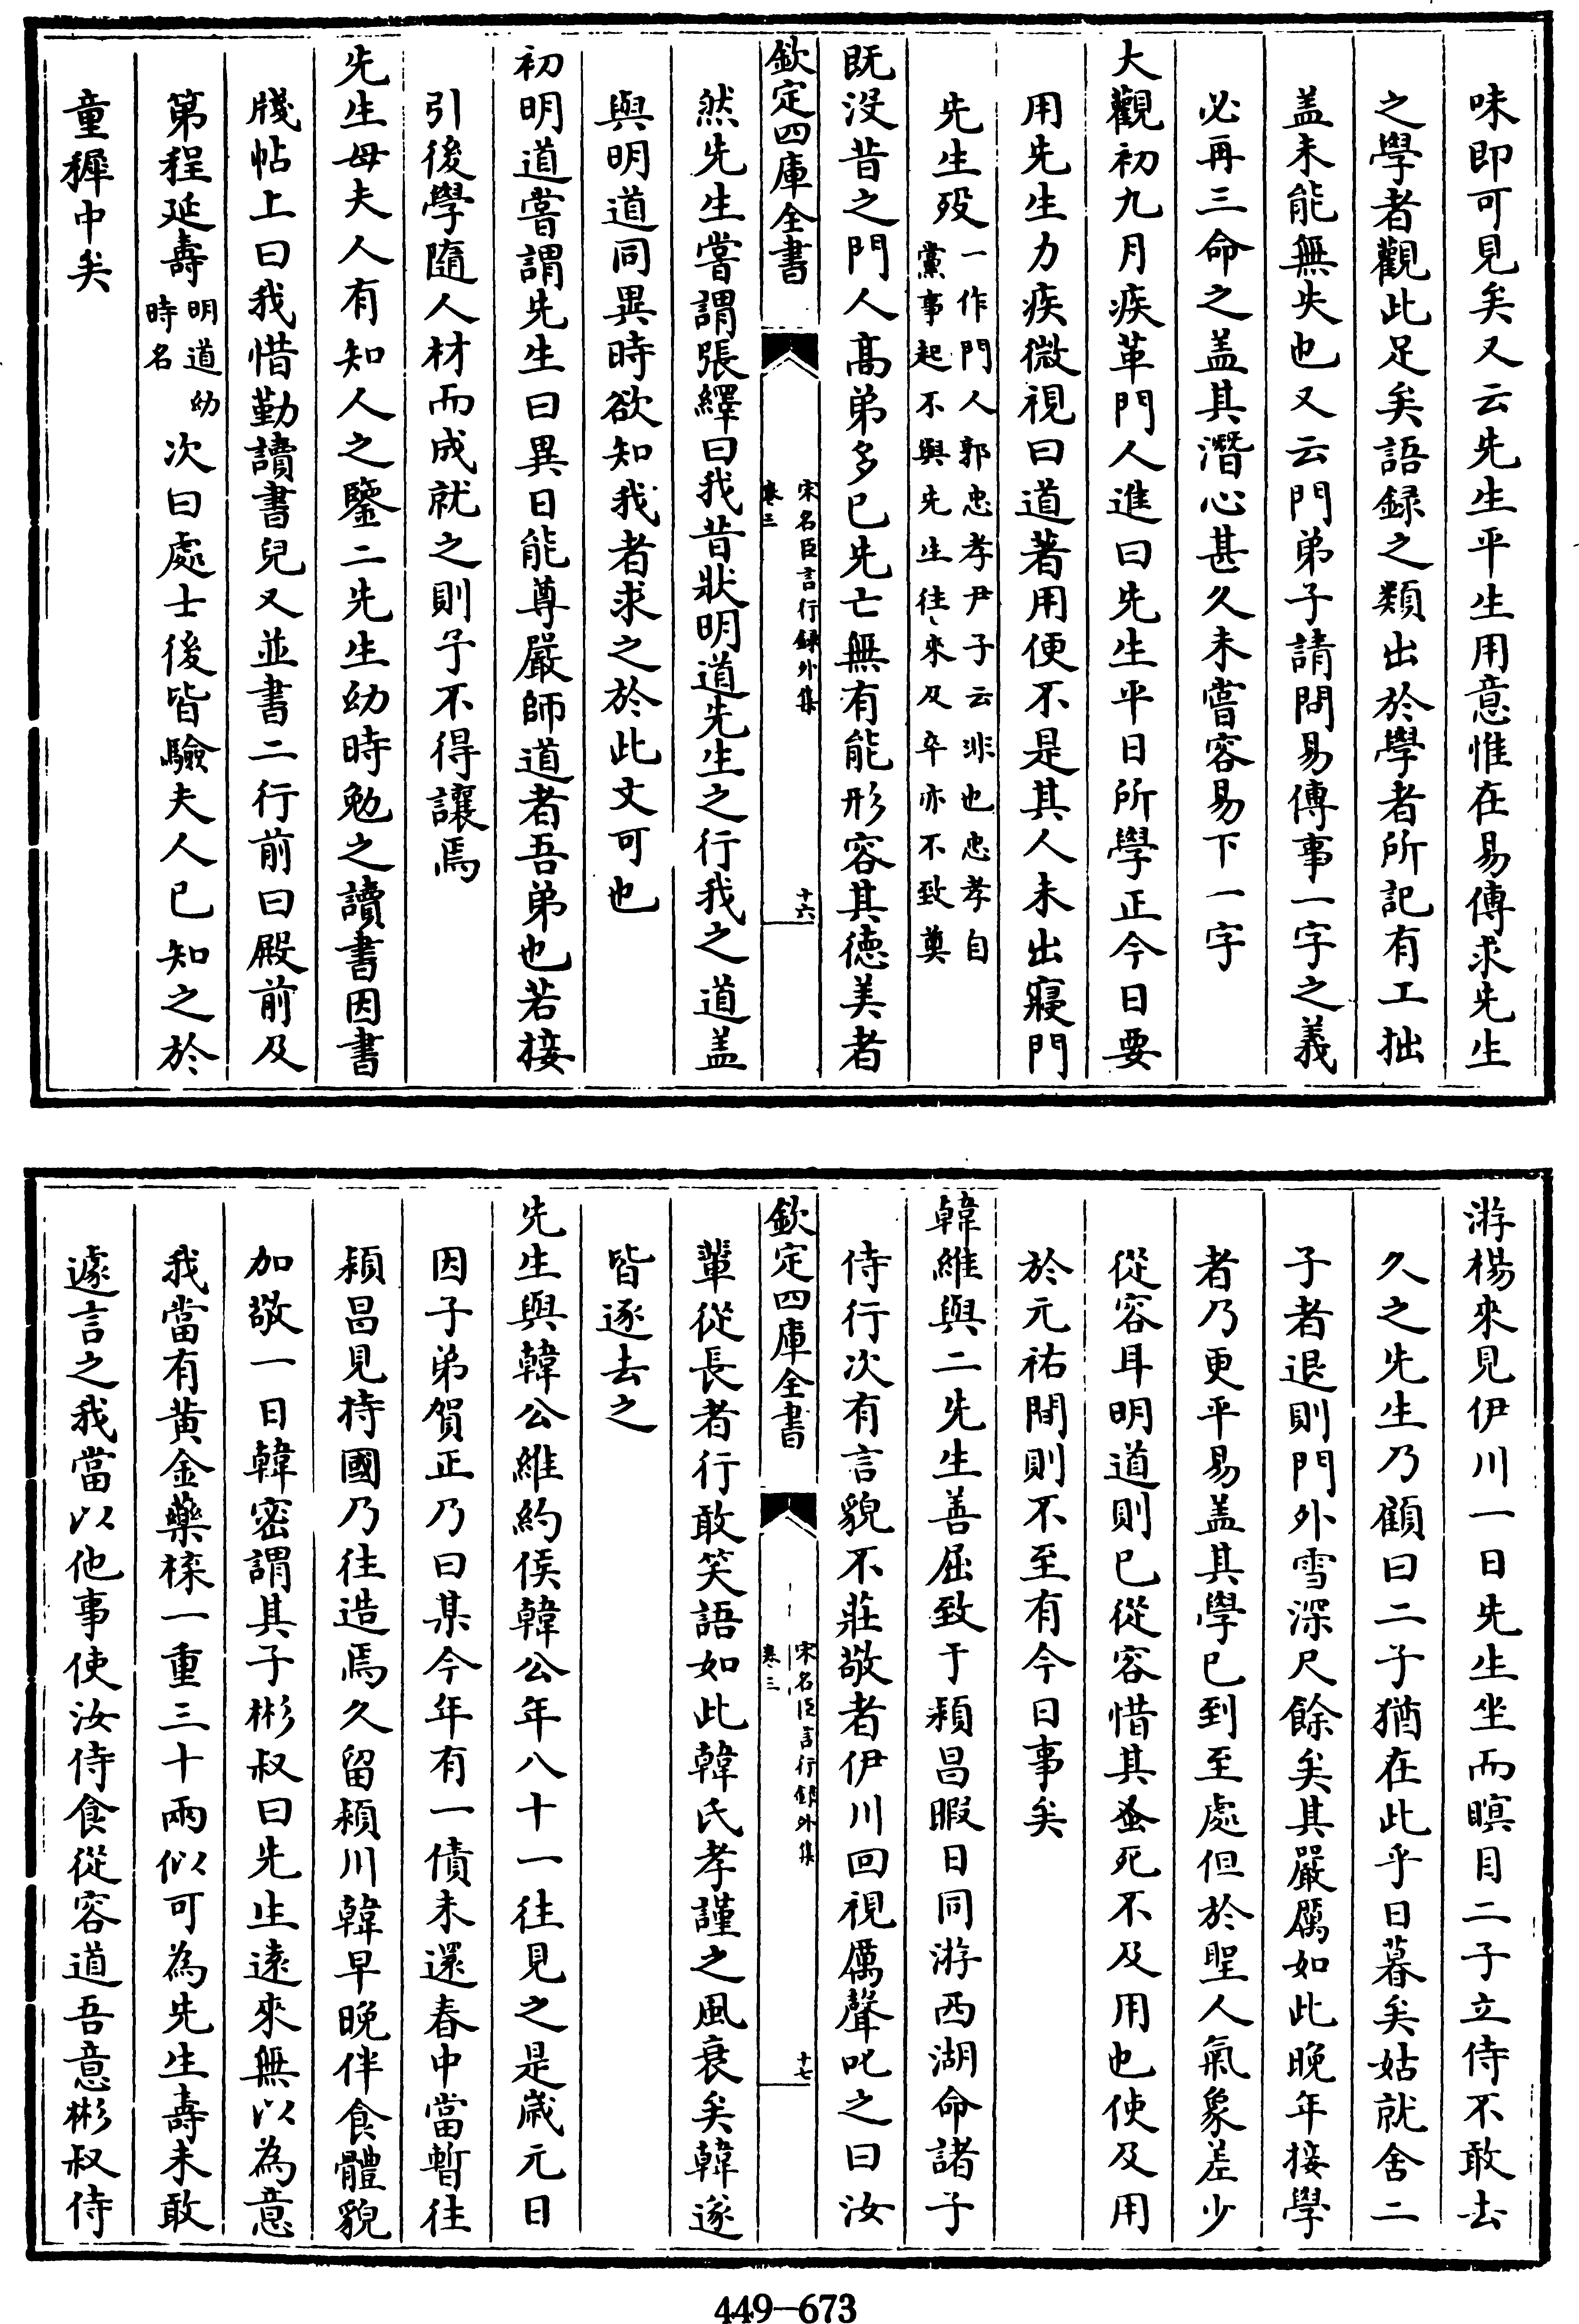 味即可見矣又云先生平生用意惟在易傳求先生
之學者觀此足矣語録之類出於學者所記有工拙
盖未能無失也又云門弟子請問易傳事一字之義
必再三命之盖其潛心甚久未嘗容易下一字
大觀初九月疾革門人進曰先生平日所學正今日要
用先生力疾微視曰道著用便不是其人未出寢門
先生殁一作門人郭忠孝尹子云非也忠孝自
黨事起不與先生往來及卒亦不致奠
既没昔之門人髙弟多已先亡無有能形容其德美者
欽定四庫全書
宋名臣言行録外集
卷三
十六
然先生嘗謂張繹曰我昔狀明道先生之行我之道盖
與明道同異時欲知我者求之於此文可也
初明道嘗謂先生曰異日能尊嚴師道者吾弟也若接
引後學隨人材而成就之則予不得讓焉
先生母夫人有知人之鑒二先生幼時勉之讀書因書
牋帖上曰我惜勤讀書兒又並書二行前曰殿前及
第程延壽明道幼
時名次曰處士後皆驗夫人已知之於
童穉中矣
游楊來見伊川一日先生坐而瞑目二子立侍不敢去
久之先生乃顧曰二子猶在此乎日暮矣姑就舍二
子者退則門外雪深尺餘矣其嚴厲如此晚年接學
者乃更平易盖其學已到至處但於聖人氣象差少
從容耳明道則已從容惜其蚤死不及用也使及用
於元祐間則不至有今日事矣
韓維與二先生善屈致于潁昌暇日同游西湖命諸子
侍行次有言貌不莊敬者伊川回視厲聲叱之曰汝
欽定四庫全書
宋名臣言行録外集
卷三
十七
輩從長者行敢笑語如此韓氏孝謹之風衰矣韓遂
皆逐去之
先生與韓公維約侯韓公年八十一往見之是歲元日
因子弟賀正乃曰某今年有一債未還春中當暫往
潁昌見持國乃往造焉久留潁川韓早晚伴食體貌
加敬一日韓密謂其子彬叔曰先生遠來無以為意
我當有黄金藥楪一重三十兩似可為先生壽未敢
遽言之我當以他事使汝侍食從容道吾意彬叔侍
449—673